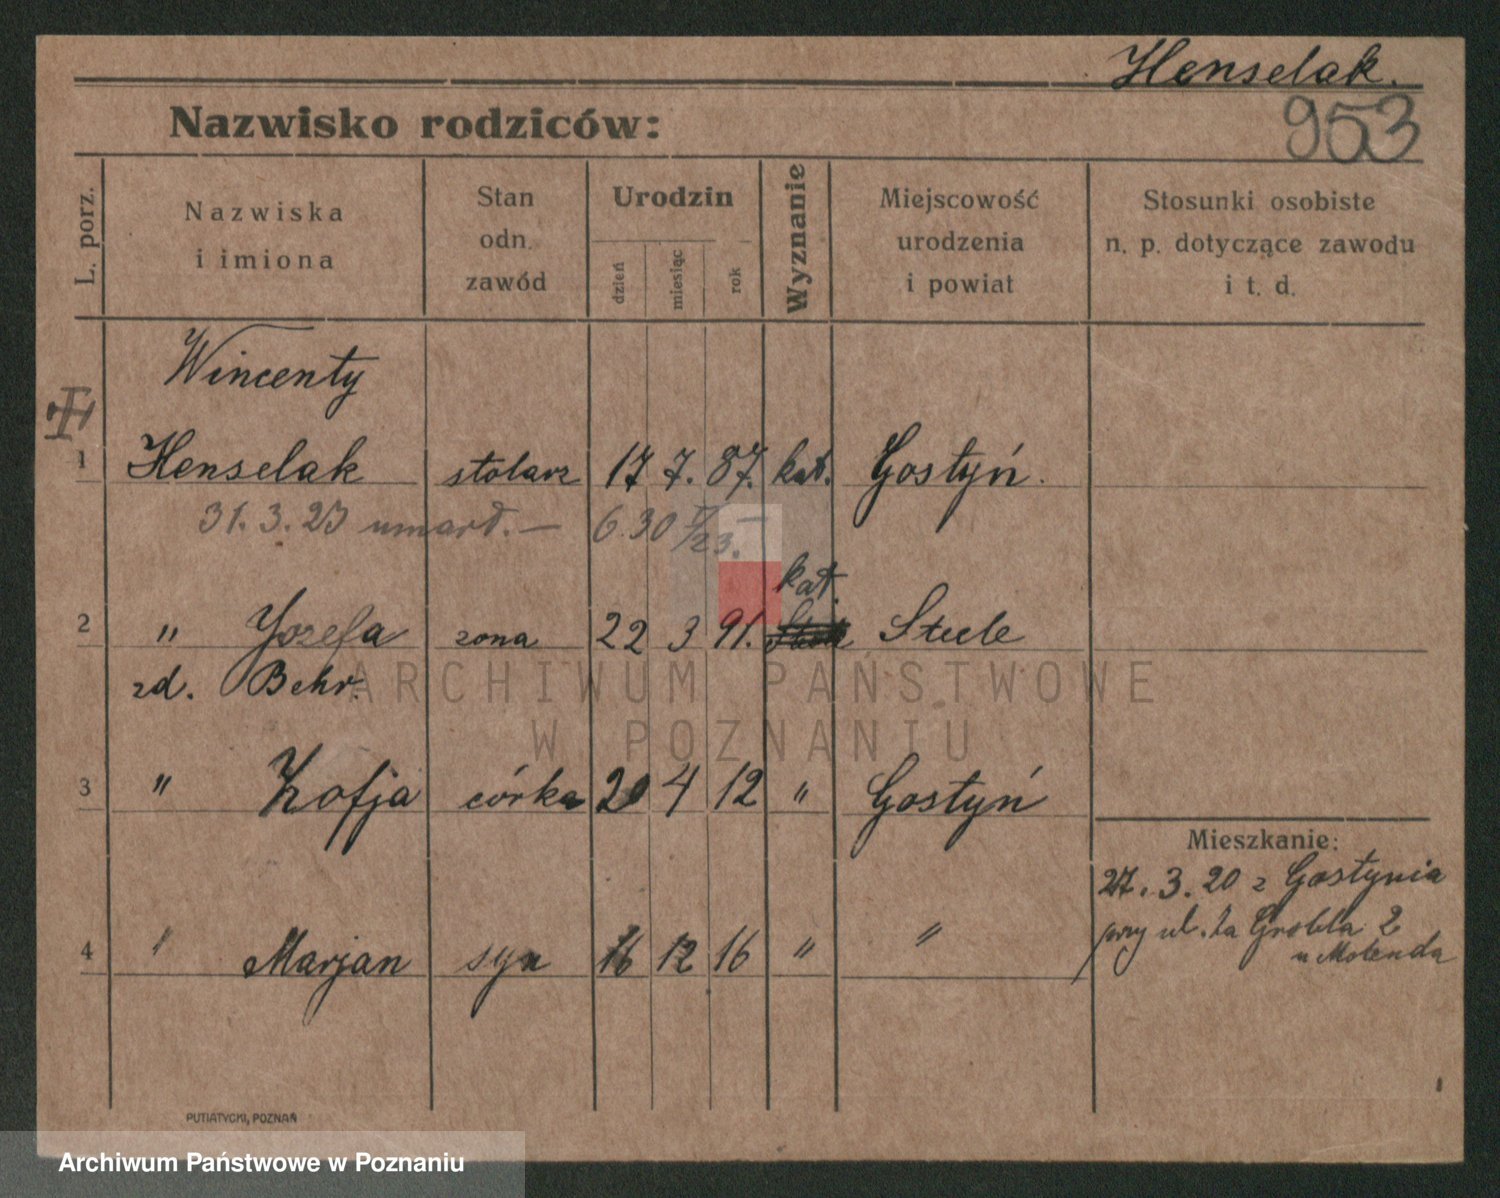 Henselak.
953
Nazwisko rodziców:
L. porz.
Nazwiska
i imiona
Stan
odn.
zawód
Urodzin
dzień
miesiąc
rok
Wyznanie
Miejscowość
urodzenia
i powiat
Stosunki osobiste
n. p. dotyczące zawodu
i t. d.
Wincenty
1 Henselak stolarz 17 7. 87. kat. Gostyń.
31. 3. 23 umarł. — 6.30 I/23. —
kat.
2 " Jozefa zona 22 3 91. Steele
zd. Behr.
3 " Zofja córka 20 4 12 " Gostyń
Mieszkanie:
27. 3. 20 z Gostynia
przy ul. Za Grobla 2
u Molenda
4 " Marjan syn 16 12 16 " "
PUTIATYCKI, POZNAŃ
ARCHIWUM PAŃSTWOWE
W POZNANIU
Archiwum Państwowe w Poznaniu